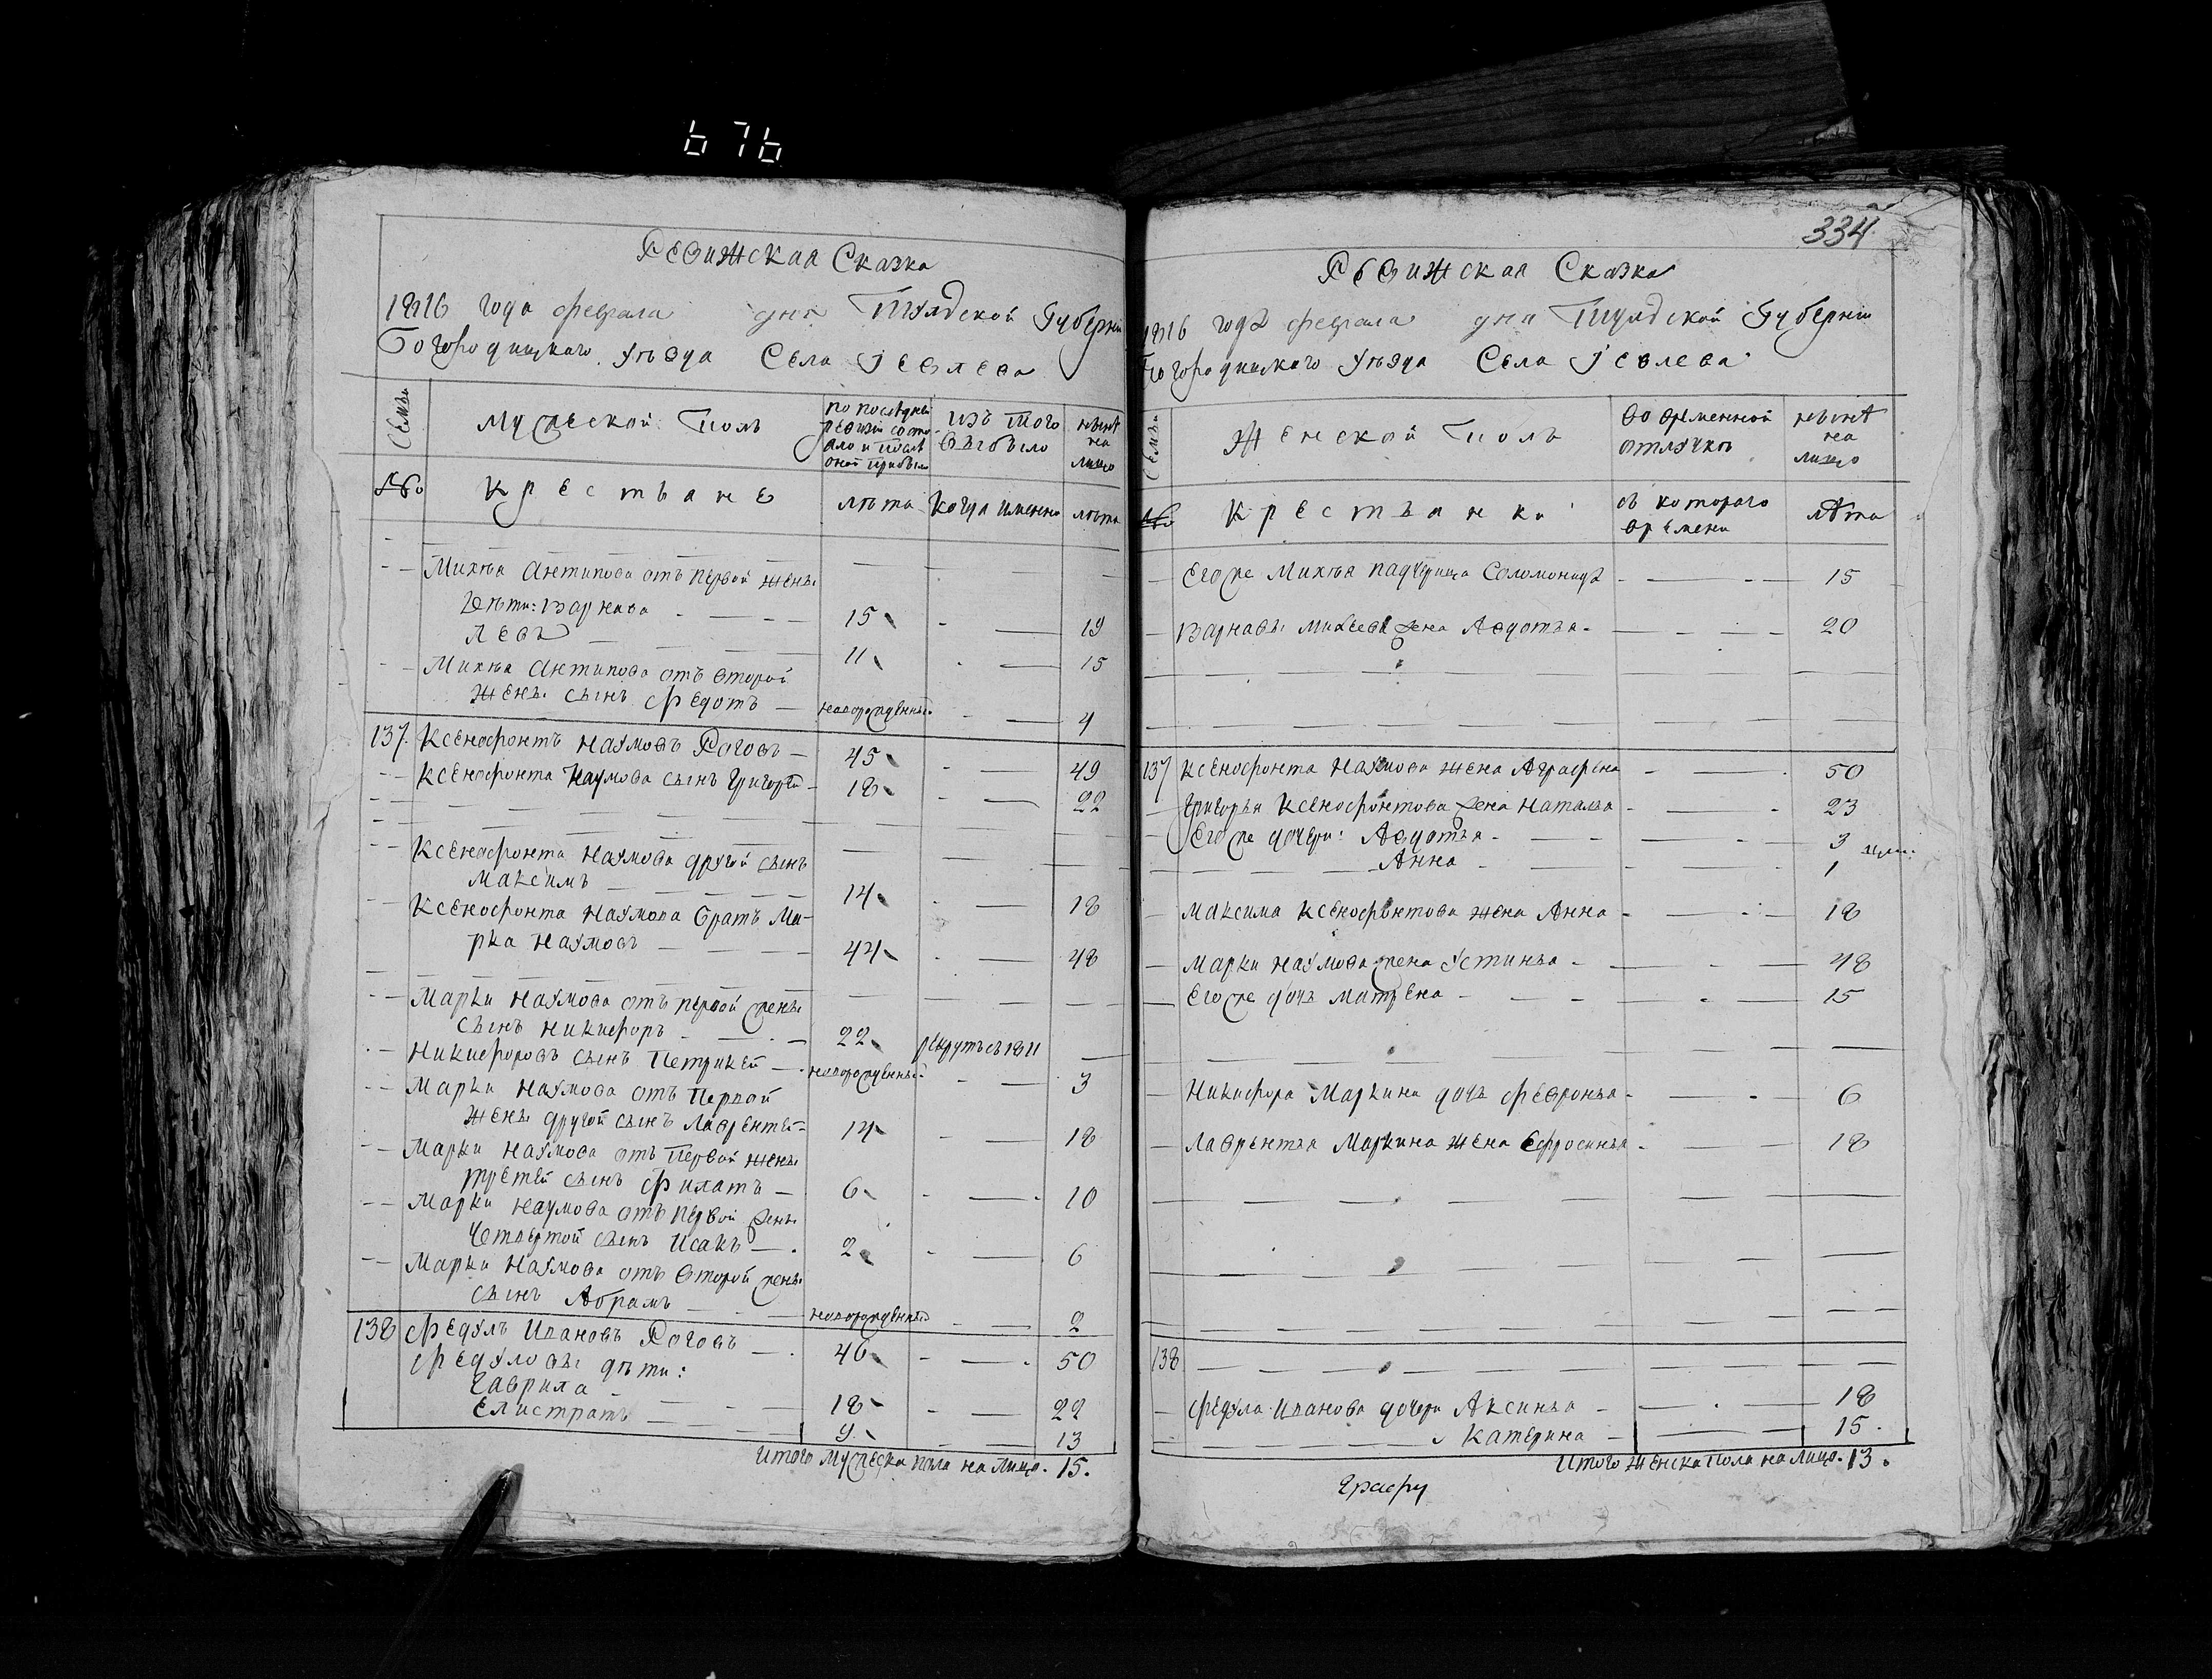 676
Ревижская Сказка
1816 года февраля дня Тульской Губернии
Богородицкаго уѣзда Села Іевлева
Семьи
Мужеской Полъ
по послѣдней ревизіи состояло и послѣ оной прибыло
Изъ того выбыло
нынѣ на лицо
№
Крестьяне
лѣта
Когда именно
лѣта
Михѣя Антипова отъ первой жены
дѣти: Варнава 15 19
Левъ 11 15
Михѣя Антипова отъ второй
жены сынъ Федотъ новорожденный 4
137. Ксенофонтъ Наумовъ Роговъ 45 49
Ксенофонта Наумова сынъ Григорей 18 22
Ксенофонта Наумова другой сынъ
Максимъ 14 18
Ксенофонта Наумова братъ Ма-
рка Наумовъ 44 48
Марки Наумова отъ первой жены
сынъ Никифоръ 22 рекрутъ съ 1811
Никифоровъ сынъ Петрикей новорожденный 3
Марки Наумова отъ первой
жены другой сынъ Лаврентей 14 18
Марки Наумова отъ первой жены
третей сынъ Филатъ 6 10
Марки Наумова отъ первой жены
четвертой сынъ Исакъ 2 6
Марки Наумова отъ второй жены
сынъ Абрамъ новорожденный 2
138 Федулъ Ивановъ Роговъ 46 50
Федуловы дѣти:
Гаврила 18 22
Елистратъ 9 13
Итого мужеска пола на лицо. 15.
334
Ревижская Сказка
1816 года февраля дня Тульской Губерніи
Богородицкаго уѣзда Села Іевлева
Семьи
Женской Полъ
Во временной отлучкѣ
нынѣ на лицо
№
Крестьянки
съ котораго времени
лѣта
Его же Михѣя падчерица Соломонида 15
Варнавы Михеева жена Авдотья 20
137 Ксенофонта Наумова жена Аграфена 50
Григорья Ксенофонтова жена Наталья 23
Его же дочери: Авдотья 3
Анна 1
Максима Ксенофонтова жена Анна 18
Марки Наумова жена Устинья 48
Его же дочь Матрена 15
Никифора Маркина дочь Февронья 6
Лаврентья Маркина жена Ефросинья 18
138
Федула Иванова дочери Аксинья 18
Катерина 15.
Итого женска пола на лицо. 13.
Графу